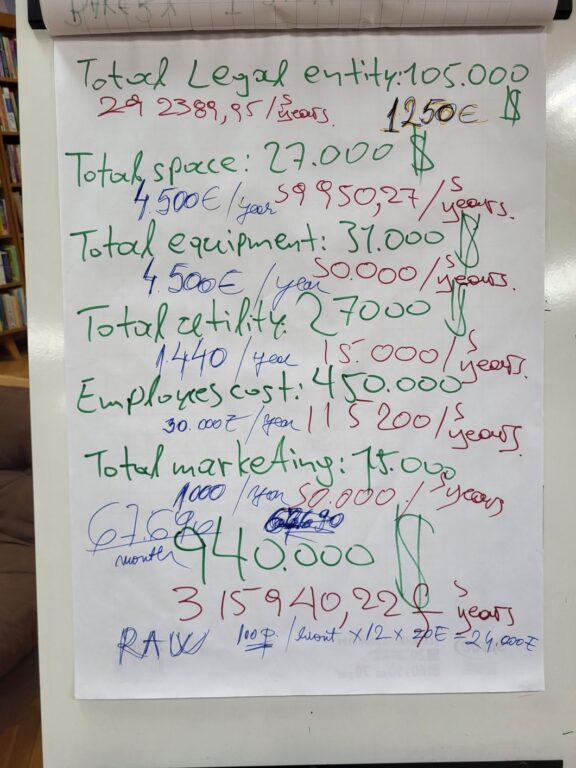 Total Legal entity: 105.000 $
29 2389,95/5 years.
1250€
Total space: 27.000 $
4.500€/year 59 950,27/5 years.
Total equipment: 31.000 $
4.500€/year 50.000/5 years.
Total utility. 27000 $
1440/year 15.000/5 years.
Employees cost: 450.000
30.000€/year 115 200/5 years.
Total marketing: 75.000
1000/year 50.000/5 years
67.690 month
940.000 $
3 15 940,22 5 years
RAW 100 p. /mont x12 x 20€ = 24.000€